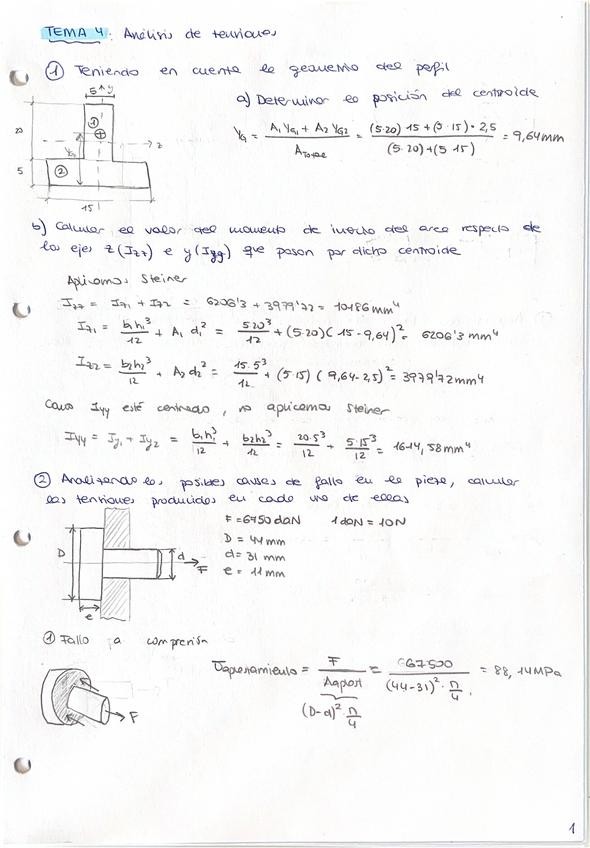 TEMA 4: Análisis de tensiones
① Teniendo en cuenta la geometría del perfil
a) Determinar la posición del centroide
5 y
20
① 
z
YG
5
②
15
YG = A1 YG1 + A2 YG2 / ATOTAL = (5·20)·15+(5·15)·2,5 / (5·20)+(5·15) = 9,64mm
b) Calcular el valor del momento de inercia del area respecto de
los ejes z (Izz) e y (Iyy) que pasan por dicho centroide
Aplicamos Steiner
Izz = Iz1 + Iz2 = 6206'3 + 3979'72 = 10186 mm⁴
Iz1 = b1h1³/12 + A1 d1² = 5·20³/12 + (5·20)(15-9,64)² = 6206'3 mm⁴
Iz2 = b2h2³/12 + A2 d2² = 15·5³/12 + (5·15)(9,64-2,5)² = 3979'72mm⁴
Como Iyy está centrado, no aplicamos Steiner
Iyy = Iy1 + Iy2 = b1h1³/12 + b2h2³/12 = 20·5³/12 + 5·15³/12 = 1614,58mm⁴
② Analizando las posibles causas de fallo en la pieza, calcular
las tensiones producidas en cada una de ellas
F = 6750 daN 1 daN = 10N
D = 44 mm
d = 31 mm
e = 11 mm
D
d
F
e
① Fallo a compresión
F
σaplastamiento = F / Aaplast = 67500 / (44-31)²·π/4 = 88,14MPa
(D-d)²·π/4
1